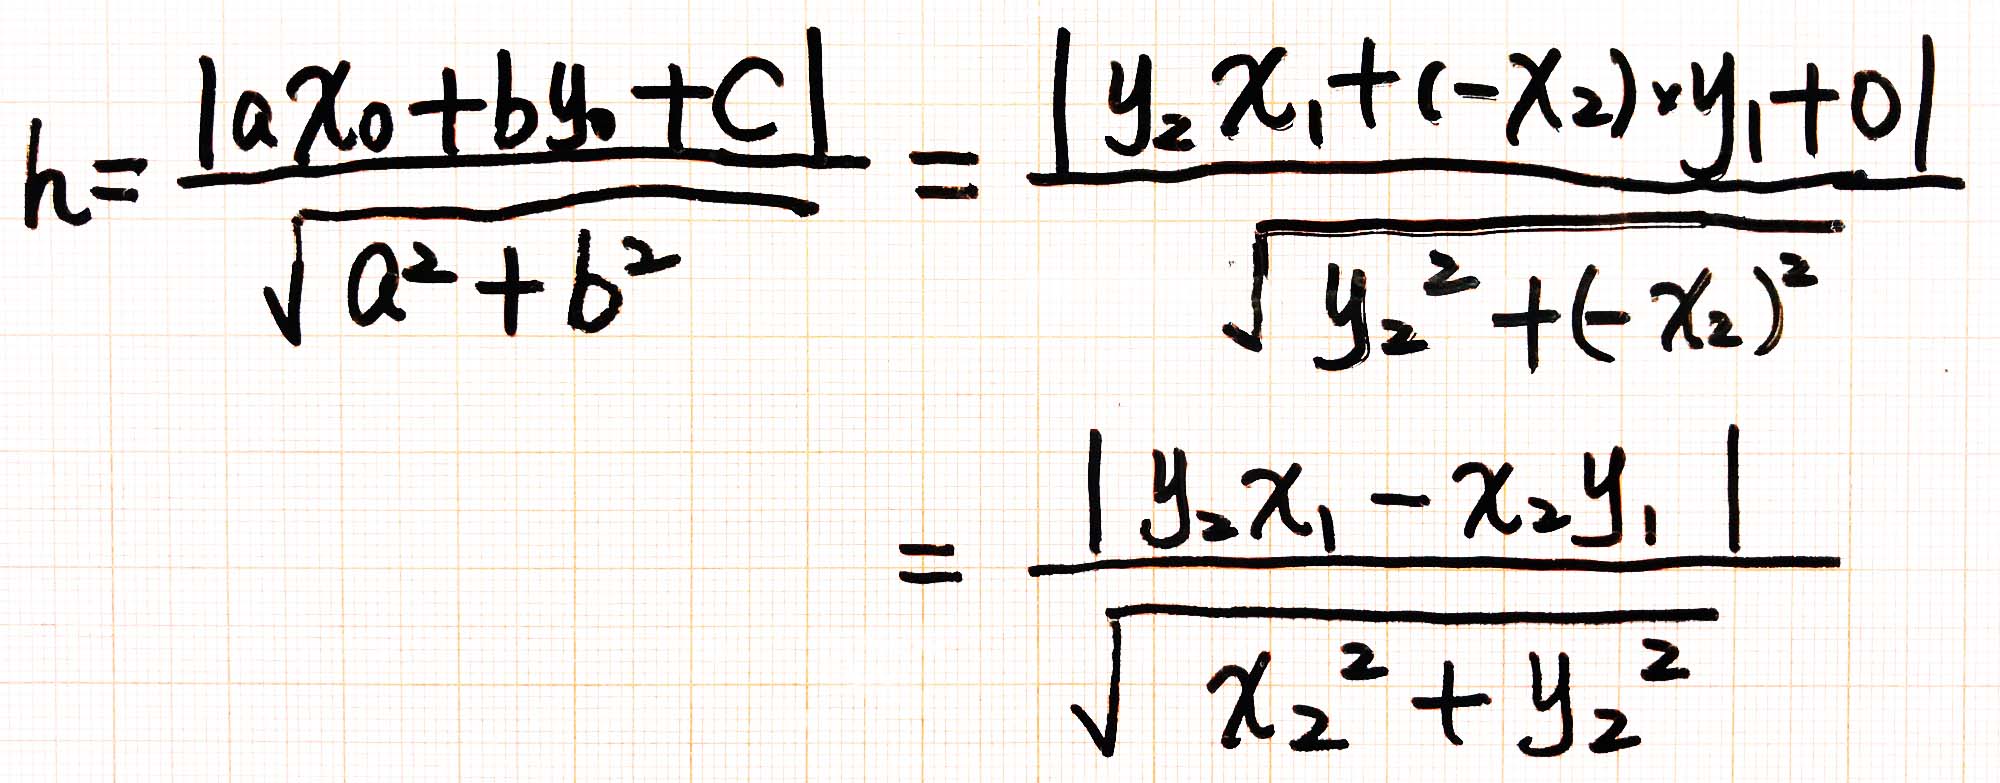 h = |ax₀+by₀+C| / √(a²+b²) = |y₂x₁+(-x₂)×y₁+0| / √(y₂²+(-x₂)²)
= |y₂x₁-x₂y₁| / √(x₂²+y₂²)